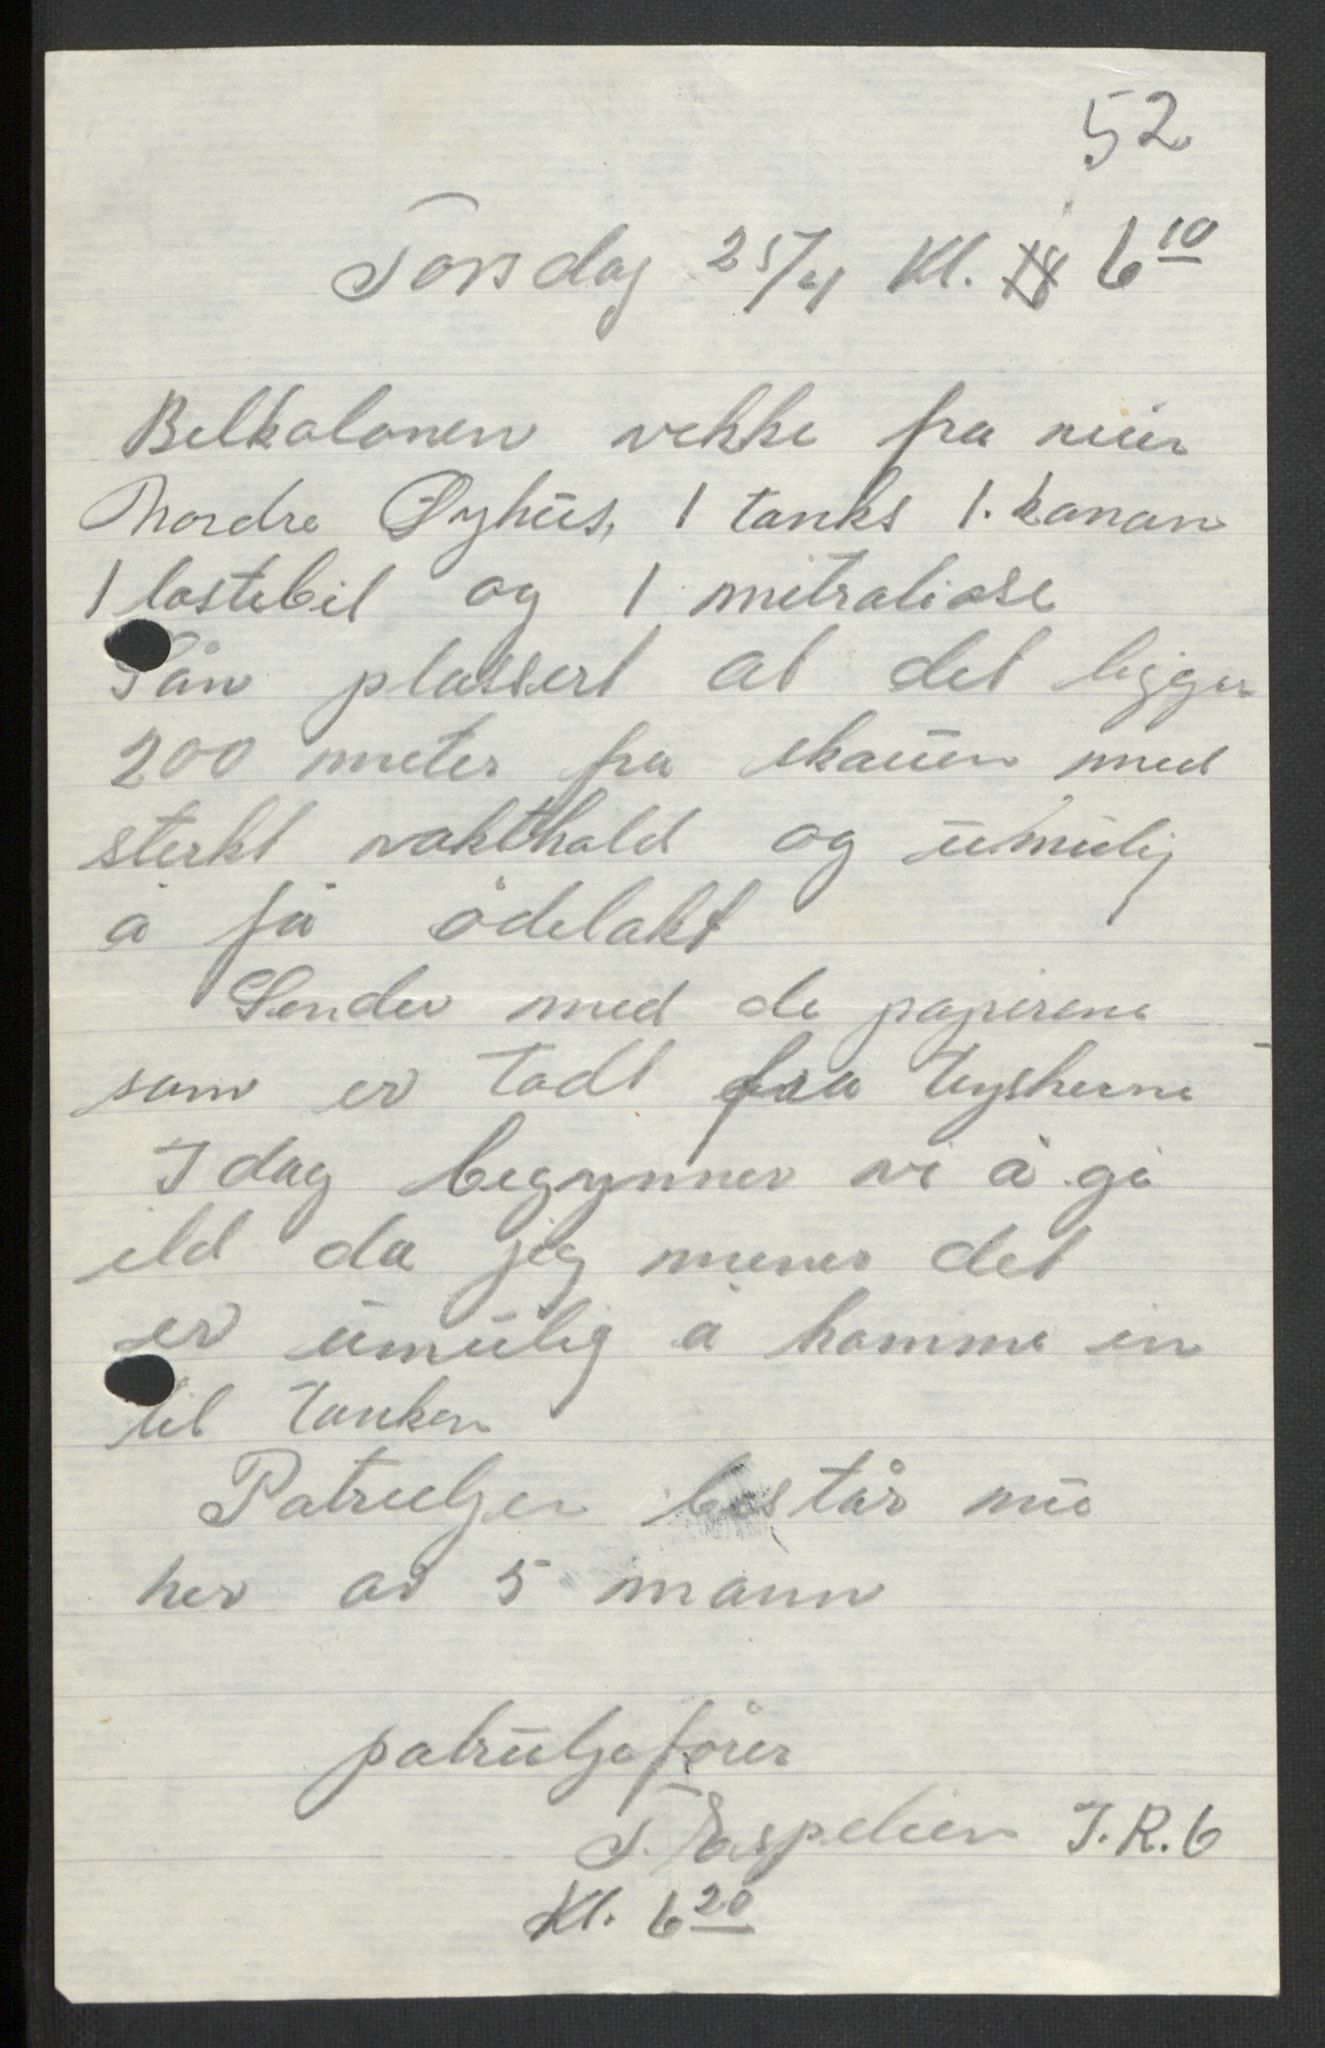 52
Torsdag 25/4 Kl. 6 10
Bilkolonen vekke fra
Nordre Øyhus, 1 tanks 1. kanon
1 lastebil og 1 mitraliøse
Sån plassert at det ligger
200 meter fra skauen med
sterkt vakthold og umulig
å få ødelakt
Sender med de papirene
som er tadt fra tyskerne
I dag begynner vi å gi
ild da jeg mener det
er umulig å komme in
til tanken
Patruljen består nu
her av 5 mann
patruljefører
T. Espelien I.R.6
Kl. 6 20